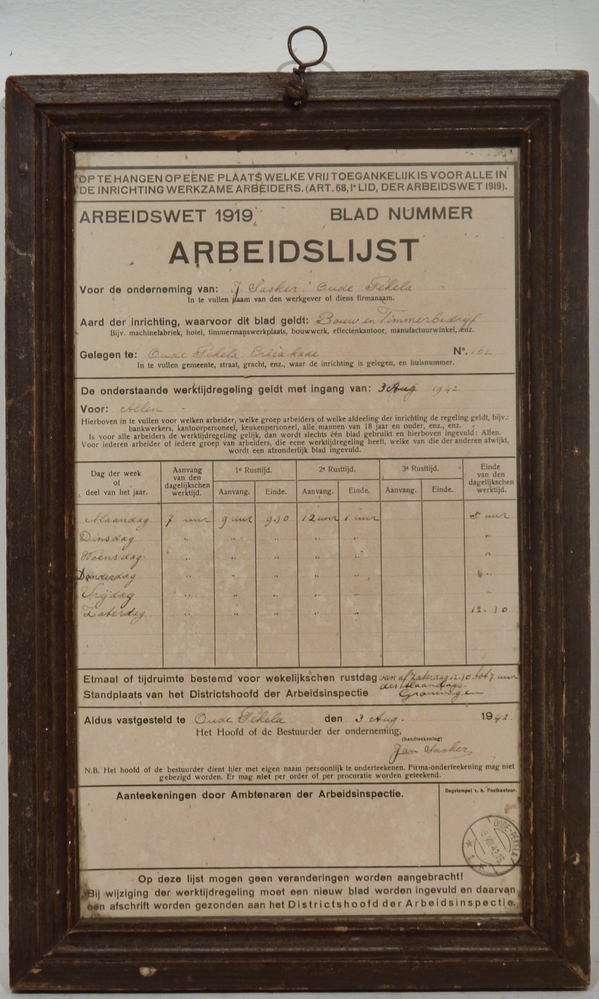 OP TE HANGEN OP EENE PLAATS WELKE VRIJ TOEGANKELIJK IS VOOR ALLE IN
DE INRICHTING WERKZAME ARBEIDERS. (ART. 68, 1e LID, DER ARBEIDSWET 1919).
ARBEIDSWET 1919 BLAD NUMMER
ARBEIDSLIJST
Voor de onderneming van: J Sasker Oude Pekela
In te vullen naam van den werkgever of diens firmanaam.
Aard der inrichting, waarvoor dit blad geldt: Bouw en Timmerbedrijf
Bijv. machinefabriek, hotel, timmermanswerkplaats, bouwwerk, effectenkantoor, manufactuurwinkel, enz.
Gelegen te: Oude Pekela No.
In te vullen gemeente, straat, gracht, enz., waar de inrichting is gelegen, en huisnummer.
De onderstaande werktijdregeling geldt met ingang van: 3 Aug 1942
Voor: Allen
Hierboven in te vullen voor welken arbeider, welke groep arbeiders of welke afdeeling der inrichting de regeling geldt, bijv.:
bankwerkers, kantoorpersoneel, keukenpersoneel, alle mannen van 18 jaar en ouder, enz., enz.
Is voor alle arbeiders de werktijdregeling gelijk, dan wordt slechts één blad gebruikt en hierboven ingevuld: Allen.
Voor iederen arbeider of iedere groep van arbeiders, die eene werktijdregeling heeft, welke van die der anderen afwijkt,
wordt een afzonderlijk blad ingevuld.
Dag der week of deel van het jaar. Aanvang van den dagelijkschen werktijd. 1e Rusttijd. 2e Rusttijd. 3e Rusttijd. Einde van den dagelijkschen werktijd.
Aanvang. Einde. Aanvang. Einde. Aanvang. Einde.
Maandag 7 uur 9 uur 9.30 12 uur 1 uur 5 uur
Dinsdag " " " " " "
Woensdag " " " " " "
Donderdag " " " " " "
Vrijdag " " " " " "
Zaterdag " " " " " 12.30
Etmaal of tijdruimte bestemd voor wekelijkschen rustdag van af Zaterdag 12.30 tot 7 uur
des Maandags.
Standplaats van het Districtshoofd der Arbeidsinspectie Groningen
Aldus vastgesteld te Oude Pekela den 3 Aug. 1942.
Het Hoofd of de Bestuurder der onderneming,
(handteekening)
Jan Sasker
N.B. Het hoofd of de bestuurder dient hier met eigen naam persoonlijk te onderteekenen. Firma-onderteekening mag niet
gebezigd worden. Er mag niet per order of per procuratie worden geteekend.
Aanteekeningen door Ambtenaren der Arbeidsinspectie.
Dagstempel v. h. Postkantoor.
OUDE-PEKELA
Op deze lijst mogen geen veranderingen worden aangebracht!
Bij wijziging der werktijdregeling moet een nieuw blad worden ingevuld en daarvan
een afschrift worden gezonden aan het Districtshoofd der Arbeidsinspectie.